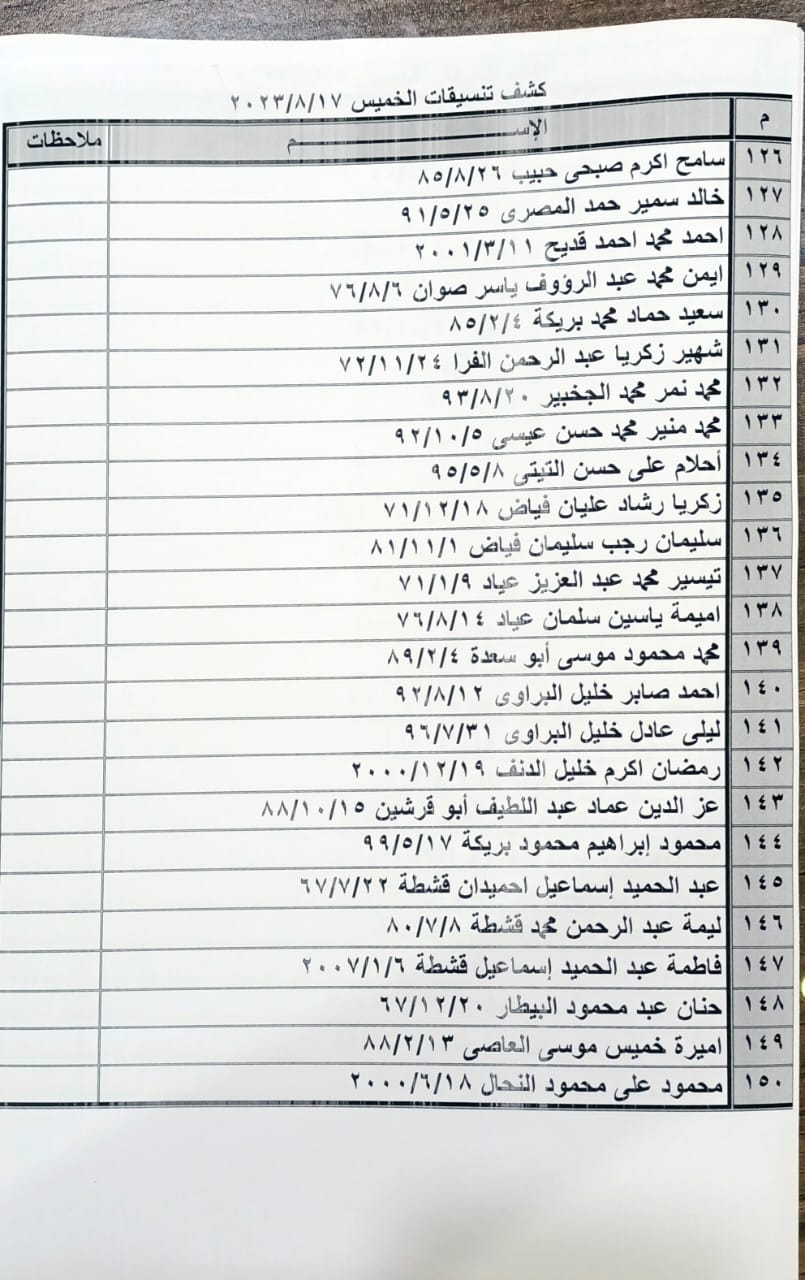 كشف تنسيقات الخميس ٢٠٢٣/٨/١٧
م الإســــــم ملاحظات
١٢٦ سامح اكرم صبحى حبيب ٨٥/٨/٢٦
١٢٧ خالد سمير حمد المصرى ٩١/٥/٢٥
١٢٨ احمد محمد احمد قديح ٢٠٠١/٣/١١
١٢٩ ايمن محمد عبد الرؤوف ياسر صوان ٧٦/٨/٦
١٣٠ سعيد حماد محمد بريكة ٨٥/٢/٤
١٣١ شهير زكريا عبد الرحمن الفرا ٧٢/١١/٢٤
١٣٢ محمد نمر محمد الجخبير ٩٣/٨/٢٠
١٣٣ محمد منير محمد حسن عيسى ٩٢/١٠/٥
١٣٤ أحلام على حسن التيتى ٩٥/٥/٨
١٣٥ زكريا رشاد عليان فياض ٧١/١٢/١٨
١٣٦ سليمان رجب سليمان فياض ٨١/١١/١
١٣٧ تيسير محمد عبد العزيز عياد ٧١/١/٩
١٣٨ اميمة ياسين سلمان عياد ٧٦/٨/١٤
١٣٩ محمد محمود موسى أبو سعدة ٨٩/٢/٤
١٤٠ احمد صابر خليل البراوى ٩٢/٨/١٢
١٤١ ليلى عادل خليل البراوى ٩٦/٧/٣١
١٤٢ رمضان اكرم خليل الدنف ٢٠٠٠/١٢/١٩
١٤٣ عز الدين عماد عبد اللطيف أبو قرشين ٨٨/١٠/١٥
١٤٤ محمود إبراهيم محمود بريكة ٩٩/٥/١٧
١٤٥ عبد الحميد إسماعيل احميدان قشطة ٦٧/٧/٢٢
١٤٦ ليمة عبد الرحمن محمد قشطة ٨٠/٧/٨
١٤٧ فاطمة عبد الحميد إسماعيل قشطة ٢٠٠٧/١/٦
١٤٨ حنان عبد محمود البيطار ٦٧/١٢/٢٠
١٤٩ اميرة خميس موسى العاصى ٨٨/٢/١٣
١٥٠ محمود على محمود النحال ٢٠٠٠/٦/١٨